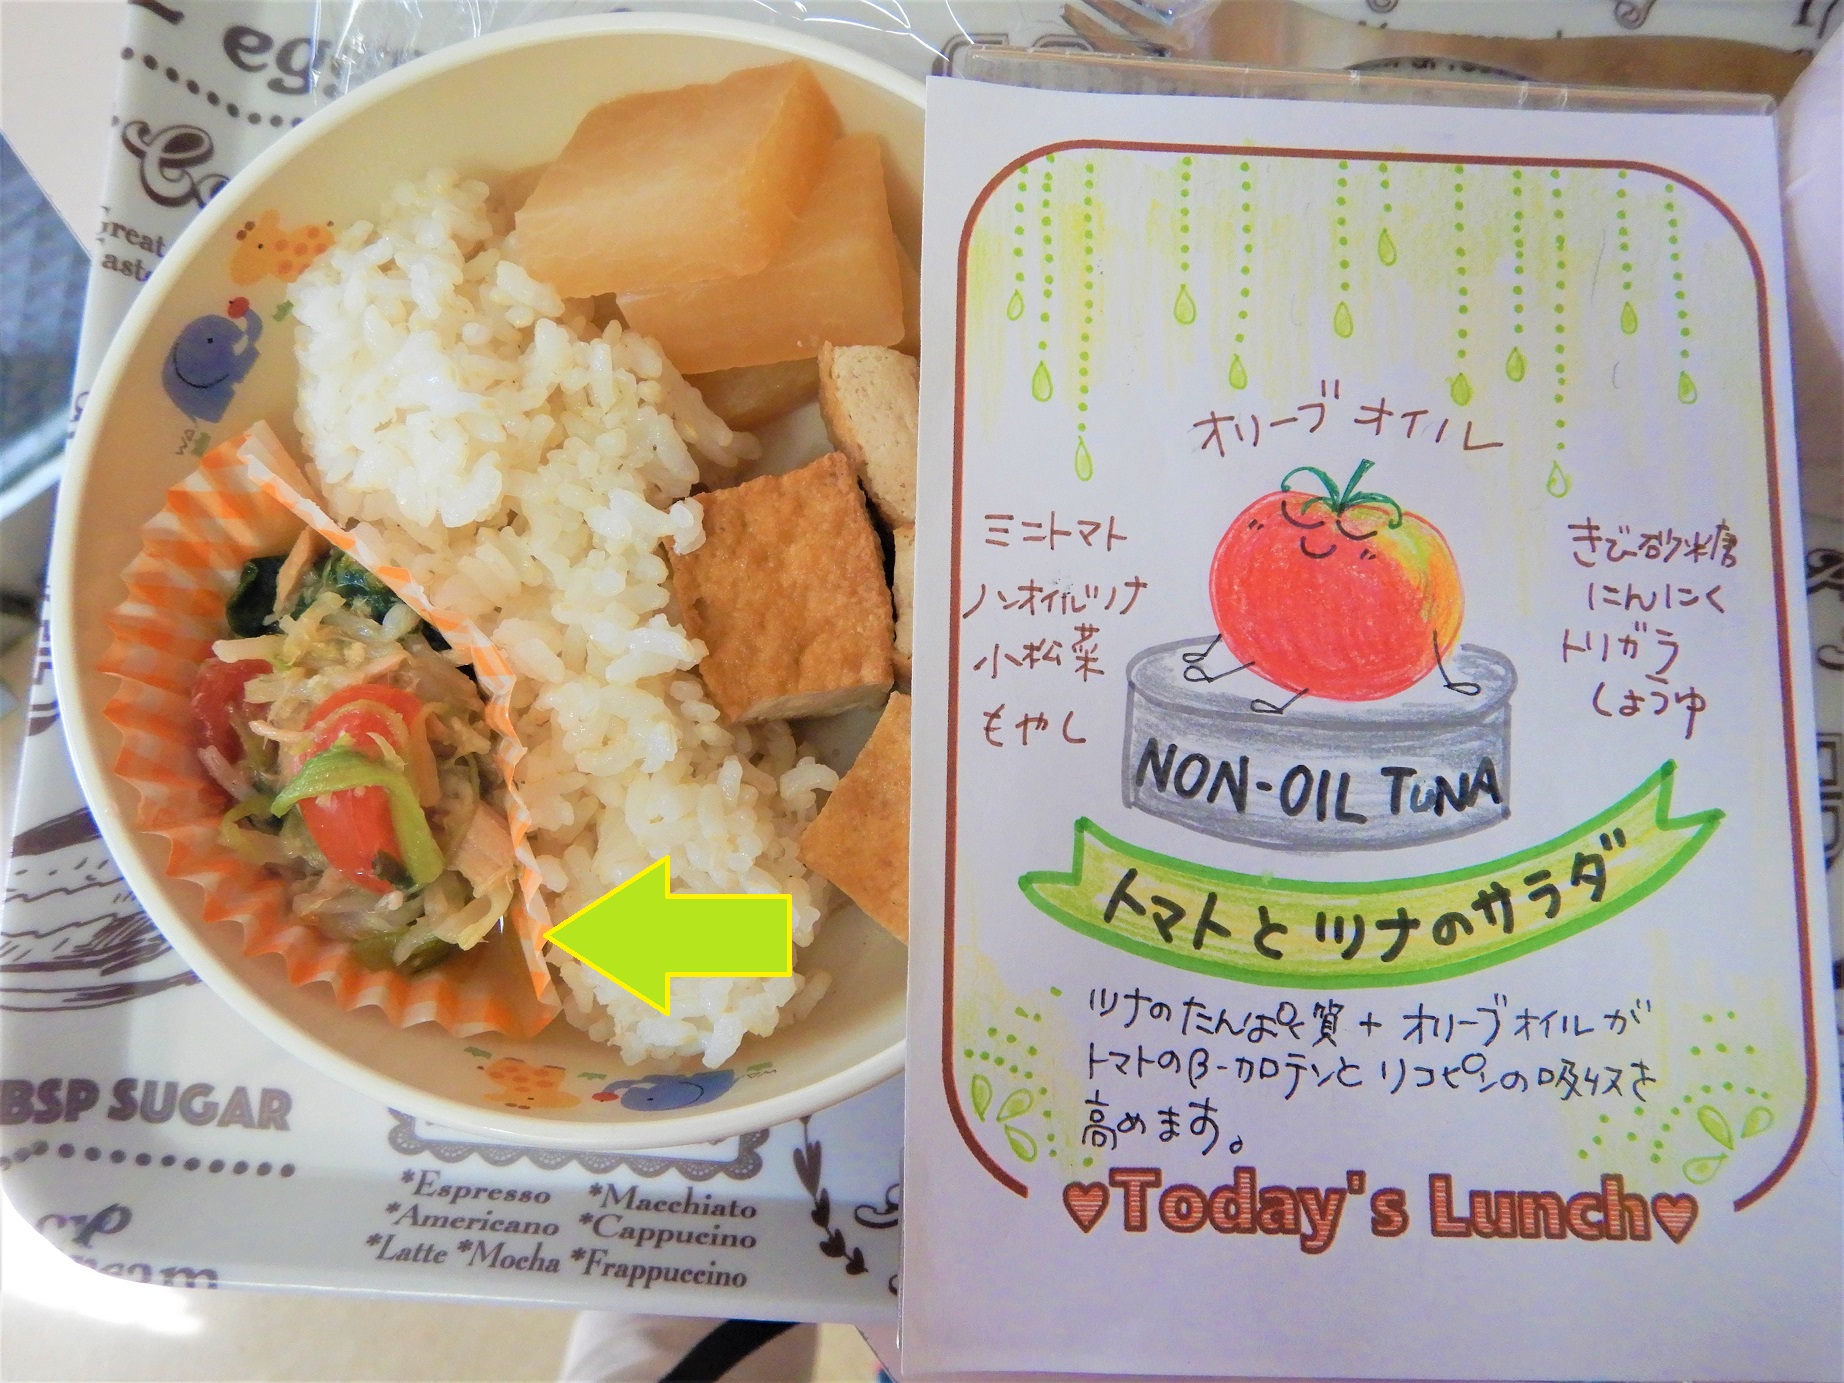 Co
Great
オリーブオイル
ミニトマト
ノンオイルツナ
小松菜
もやし
きび砂糖
にんにく
トリガラ
しょうゆ
NON-OIL TUNA
トマトとツナのサラダ
ツナのたんぱく質+オリーブオイルが
トマトのβ-カロテンとリコピンの吸収を
高めます。
♥Today's Lunch♥
BSP SUGAR
*Espresso *Macchiato
*Americano *Cappucino
*Latte *Mocha *Frappuccino